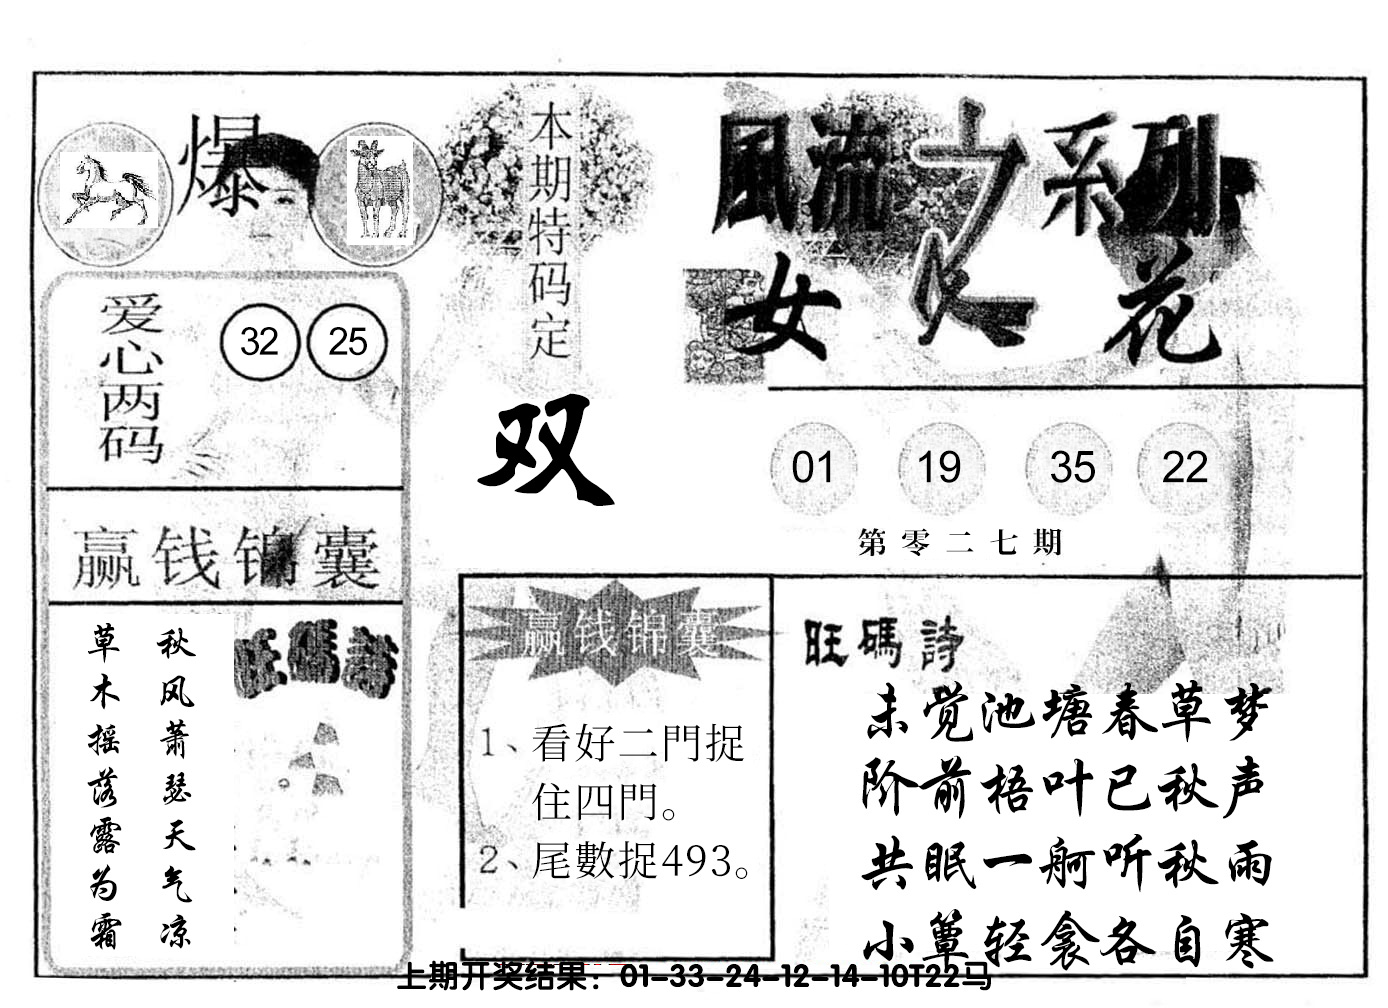 爆
爱心两码
32 25
赢钱锦囊
秋风萧瑟天气凉
草木摇落露为霜
旺碼詩
本期特码定
双
風流之系列
女人花
01 19 35 22
第零二七期
赢钱锦囊
1、看好二門捉
住四門。
2、尾數捉493。
旺碼詩
未觉池塘春草梦
阶前梧叶已秋声
共眠一舸听秋雨
小簟轻衾各自寒
上期开奖结果：01-33-24-12-14-10T22马